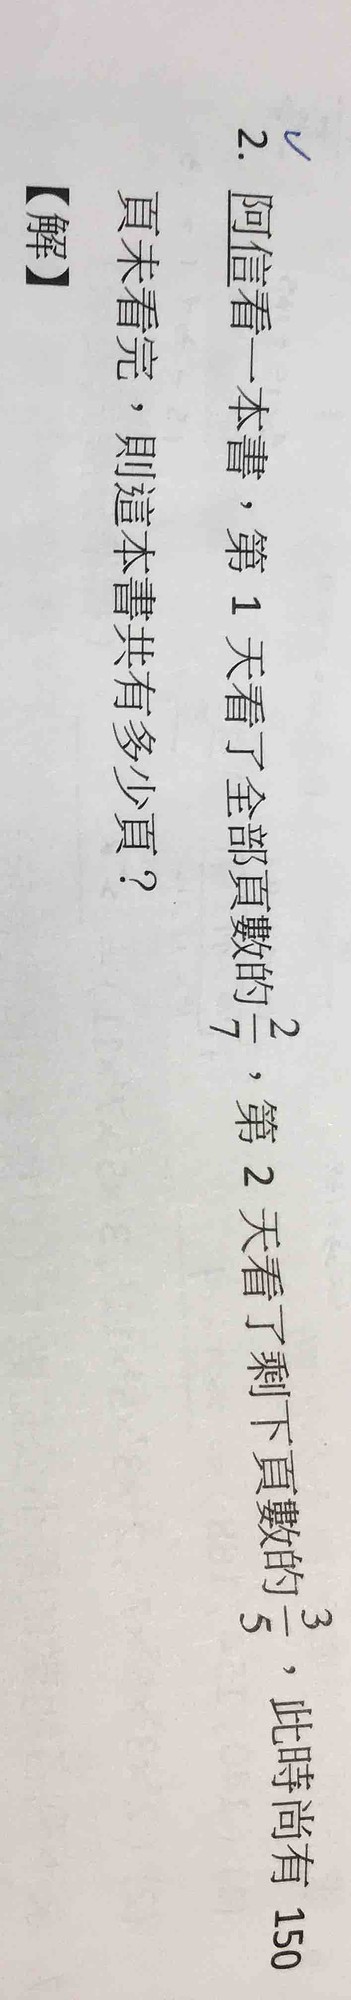 2. 阿信看一本書，第 1 天看了全部頁數的 2/7，第 2 天看了剩下頁數的 3/5，此時尚有 150
頁未看完，則這本書共有多少頁？
【解】